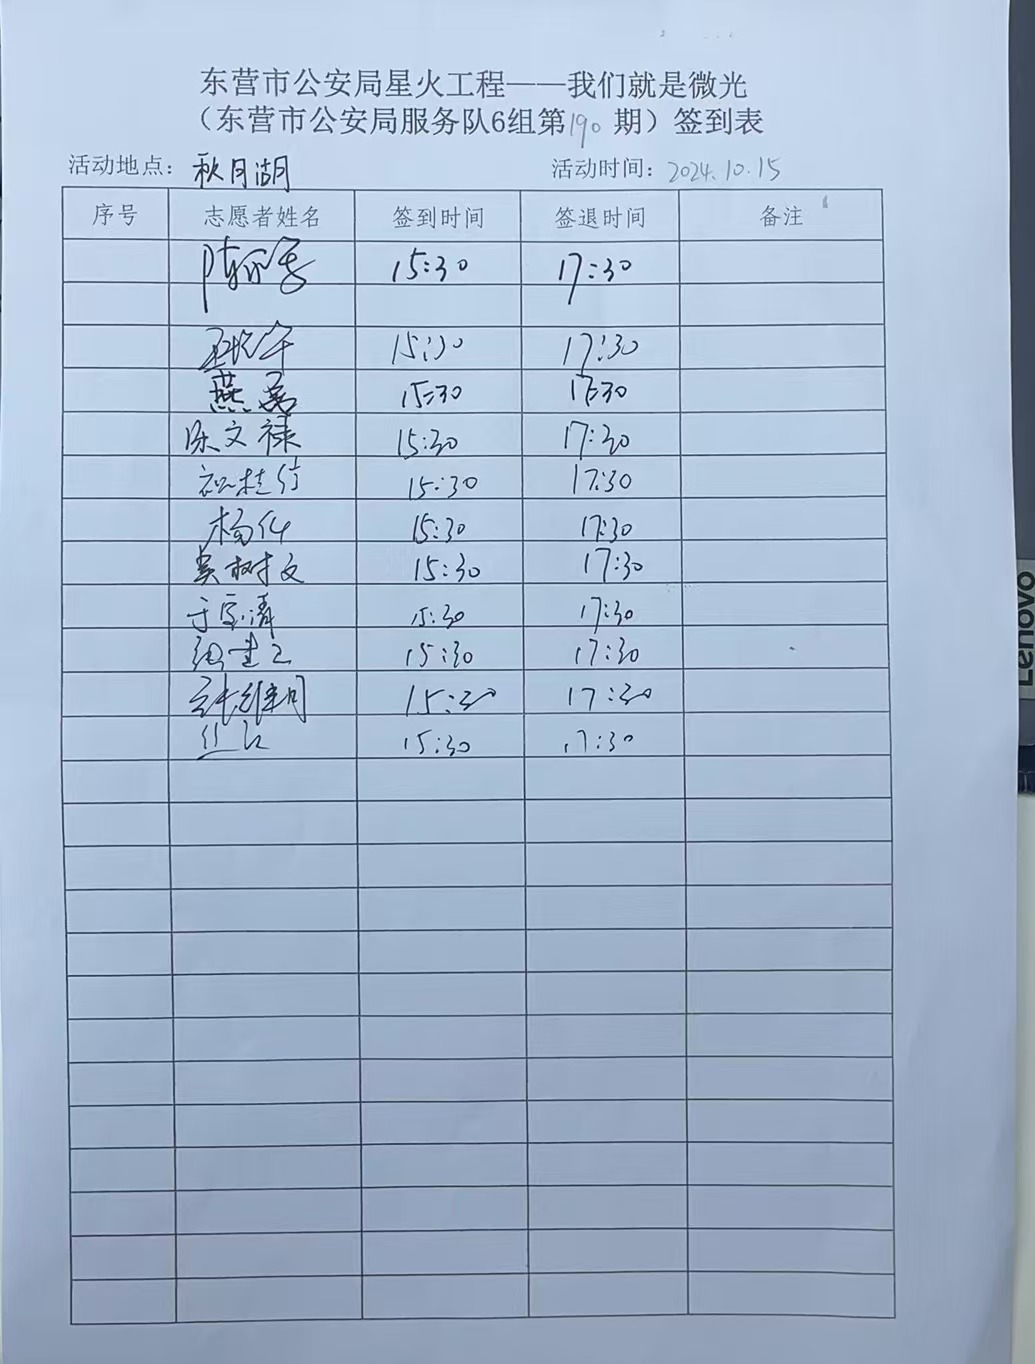 东营市公安局星火工程——我们就是微光
（东营市公安局服务队6组第190期）签到表
活动地点：秋月湖 活动时间：2024.10.15
序号 志愿者姓名 签到时间 签退时间 备注
15:30 17:30
15:30 17:30
燕 15:30 17:30
陈文禄 15:30 17:30
桂 15:30 17:30
杨 15:30 17:30
吴树文 15:30 17:30
于 清 15:30 17:30
建 15:30 17:30
15:30 17:30
15:30 17:30
Lenovo